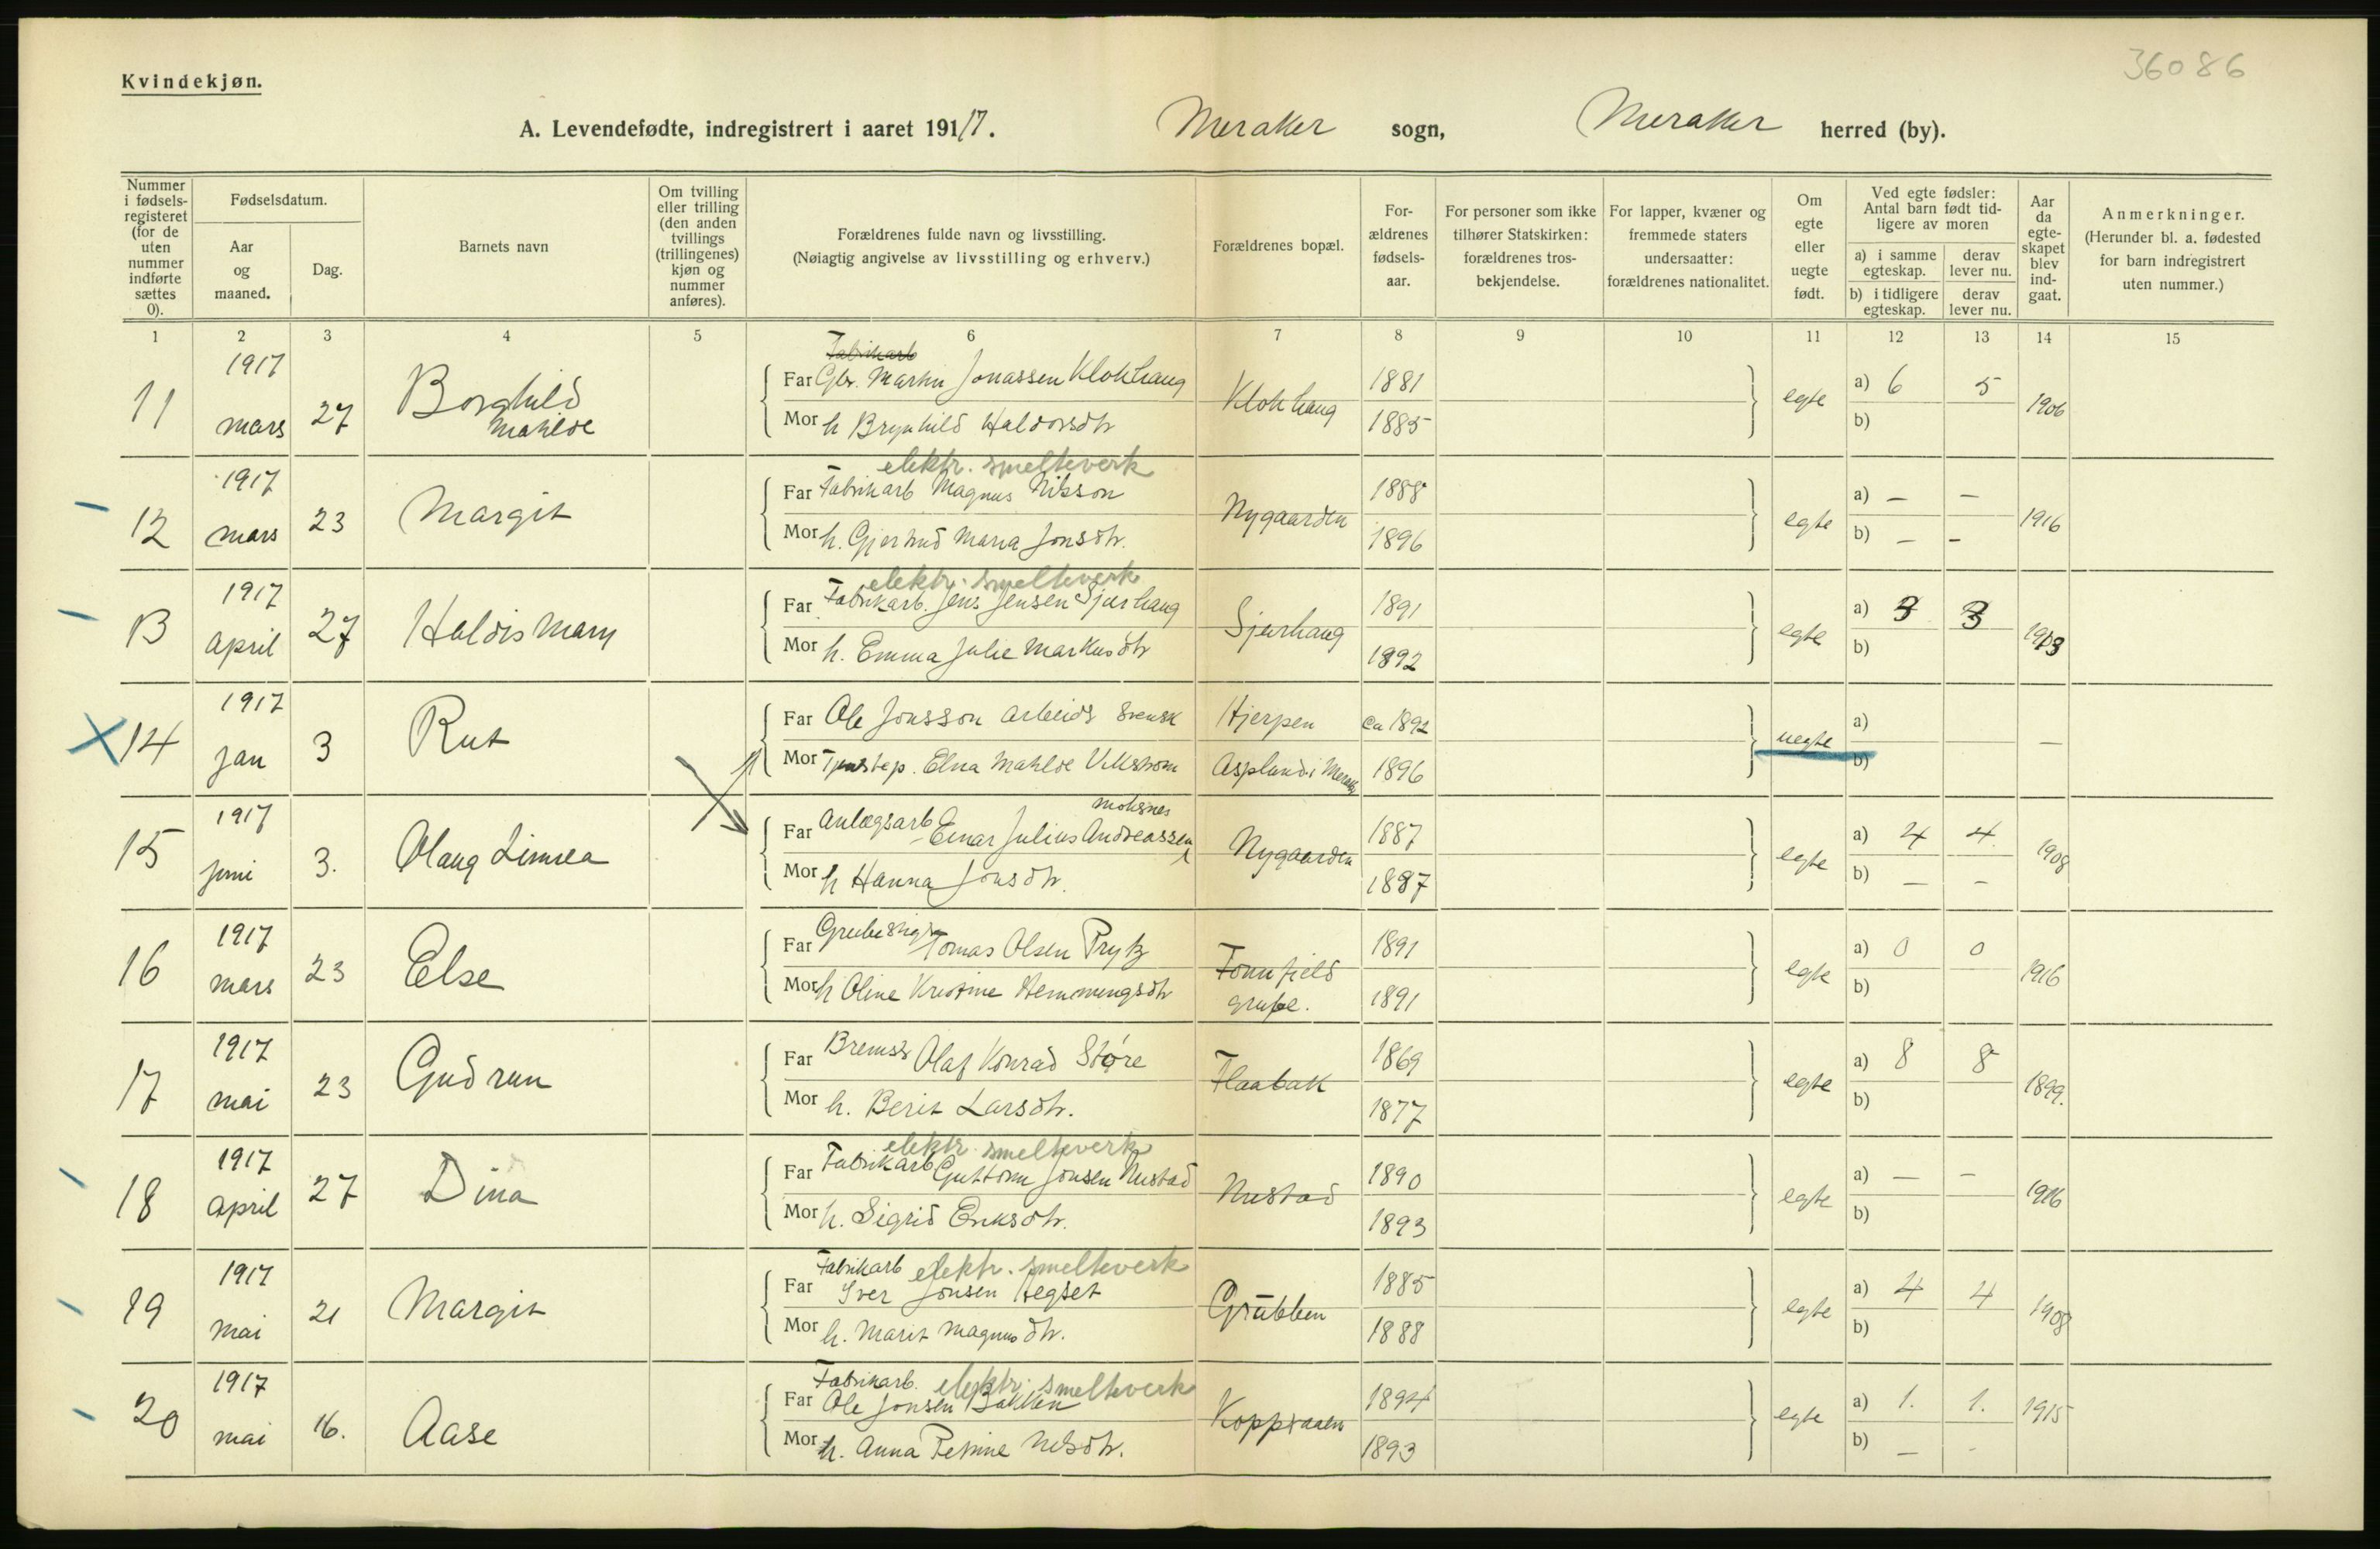 36086
Kvindekjøn.
A. Levendefødte, indregistrert i aaret 1917. Meraker sogn, Meraker herred (by).
Nummer i fødsels-registeret (for de uten nummer indførte sættes 0).
Fødselsdatum.
Aar og maaned.
Dag.
Barnets navn
Om tvilling eller trilling (den anden tvillings (trillingenes) kjøn og nummer anføres).
Forældrenes fulde navn og livsstilling.
(Nøiagtig angivelse av livsstilling og erhverv.)
Forældrenes bopæl.
For-ældrenes fødsels-aar.
For personer som ikke tilhører Statskirken: forældrenes tros-bekjendelse.
For lapper, kvæner og fremmede staters undersaatter: forældrenes nationalitet.
Om egte eller uegte født.
Ved egte fødsler: Antal barn født tid-ligere av moren
a) i samme egteskap. derav lever nu.
b) i tidligere egteskap. derav lever nu.
Aar da egte-skapet blev ind-gaat.
Anmerkninger.
(Herunder bl. a. fødested for barn indregistrert uten nummer.)
1 2 3 4 5 6 7 8 9 10 11 12 13 14 15
11 1917 mars 27 Borghild Mathilde
Fabrikarb
Far Gbr. Martin Jonassen Klokhaug Klokhaug 1881 egte a) 6 5 1906
Mor h Brynhild Haldorsdtr 1885 b)
12 1917 mars 23 Margit
elektr. smelteverk
Far Fabrikarb Magnus Nilsson Nygaarden 1888 egte a) — — 1916
Mor h. Gjertrud Maria Jonsdtr. 1896 b) — —
13 1917 april 27 Haldis Mary
elektr. smelteverk
Far Fabrikarb. Jens Jensen Sjurhaug Sjurhaug 1891 egte a) 3 3 1913
Mor h. Emma Julie Markusdtr 1892 b)
14 1917 jan 3 Rut
Far Ole Jonsson arbeids svensk Hjerpen ca 1892 uegte a) —
Mor Tjenstep. Elna Mathilde Vikstrøm Aspland i Meraker 1896 b)
15 1917 juni 3. Olaug Linnea
moksnes
Far Anlægsarb Einar Julius Andreassen Nygaarden 1887 egte a) 4 4 1908
Mor h Hanna Jonsdtr. 1887 b) — —
16 1917 mars 23 Else
Far Tomas Olsen Prytz Fonnfjeld grube. 1891 egte a) 0 0 1916
Mor h Oline Kristine Hemmingsdtr 1891 b)
17 1917 mai 23 Gudrun
Far Brems. Olaf Konrad Støre Flaabak 1869 egte a) 8 8 1899.
Mor h. Berit Larsdtr. 1877 b)
18 1917 april 27 Dina
elektr smelteverk
Far Fabrikarb Guttorm Jonsen Nustad Nustad 1890 egte a) — — 1916
Mor h. Sigrid Eriksdtr. 1893 b)
19 1917 mai 21 Margit
Fabrikarb elektr. smelteverk
Far Iver Jonsen Hegset Grubben 1885 egte a) 4 4 1908
Mor h. Marit Magnusdtr. 1888 b)
20 1917 mai 16. Aase
Fabrikarb. elektr. smelteverk
Far Ole Jonsen Bakken Kopperaaen 1894 egte a) 1. 1. 1915
Mor h. Anna Petrine Nilsdtr. 1893 b) — -